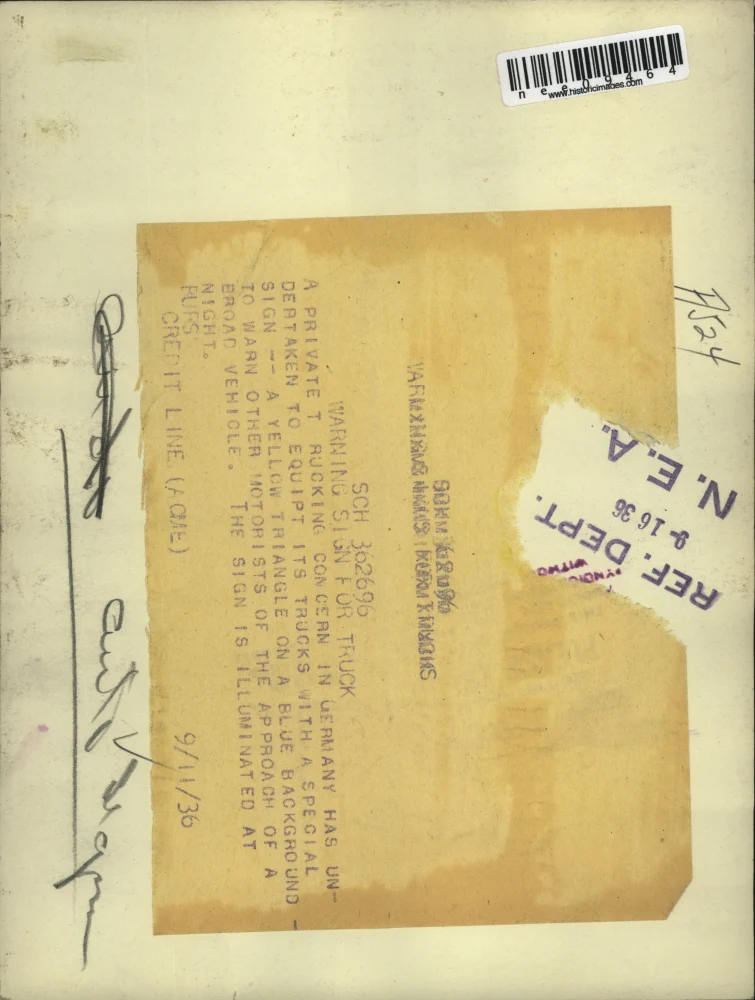 nee09464
www.historicimages.com
7524
N.E.A.
9-16 36
REF. DEPT.
SCH 362696
WARNING SIGN FOR TRUCK
A PRIVATE T RUCKING CONCERN IN GERMANY HAS UN-
DERTAKEN TO EQUIPT ITS TRUCKS WITH A SPECIAL
SIGN -- A YELLOW TRIANGLE ON A BLUE BACKGROUND -
TO WARN OTHER MOTORISTS OF THE APPROACH OF A
BROAD VEHICLE. THE SIGN IS ILLUMINATED AT
NIGHT.
FURS
CREDIT LINE (ACME) 9/11/36